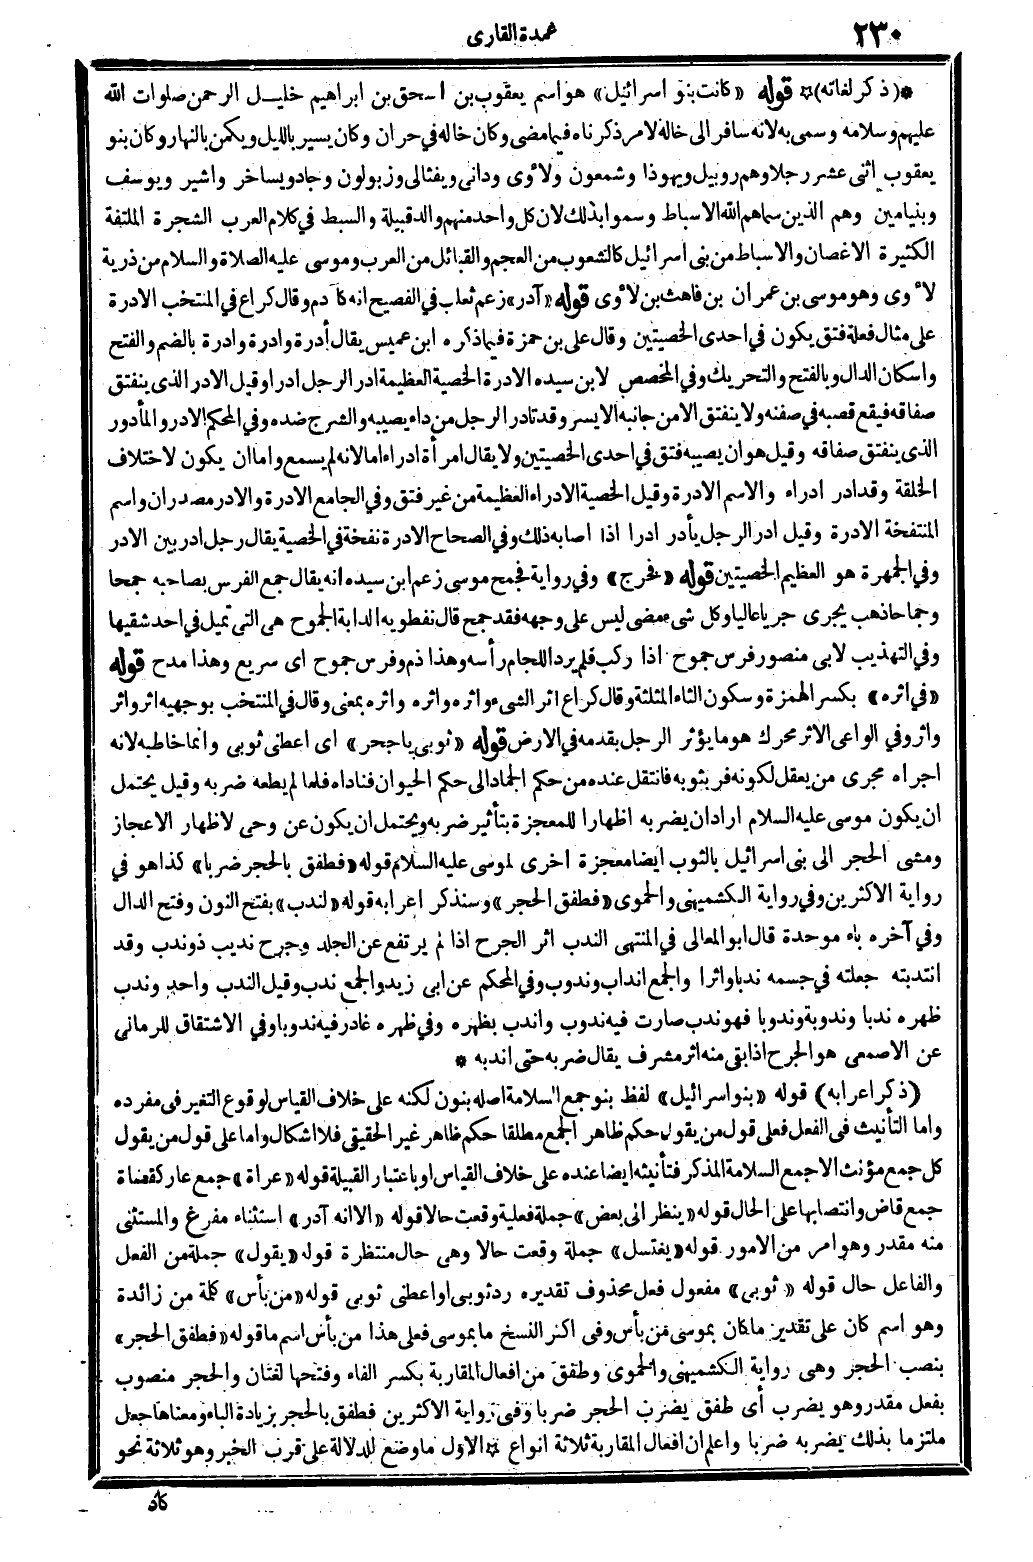 ٢٣٠
عمدة القارى
*(ذكر لغاته)* قوله «كانت بنو اسرائيل» هو اسم يعقوب بن اسحق بن ابراهيم خليل الرحمن صلوات الله
عليهم وسلامه وسمى به لانه سافر الى خاله لامر ذكرناه فيما مضى وكان خاله فى حران وكان يسير بالليل ويكمن بالنهار وكان بنو
يعقوب اثنى عشر رجلا وهم روبيل ويهوذا وشمعون ولاوى ودانى ويفثالى وزبولون وجاد ويساخر واشير ويوسف
وبنيامين وهم الذين سماهم الله الاسباط وسموا بذلك لان كل واحد منهم والد قبيلة والسبط فى كلام العرب الشجرة الملتفة
الكثيرة الاغصان والاسباط من بنى اسرائيل كالشعوب من العجم والقبائل من العرب وموسى عليه الصلاة والسلام من ذرية
لاوى وهو موسى بن عمران بن قاهث بن لاوى قوله «آدر» زعم ثعلب فى الفصيح انه كآدم وقال كراع فى المنتخب الادرة
على مثال فعلة فتق يكون فى احدى الخصيتين وقال على بن حمزة فيما ذكره ابن عميس يقال أدرة وادرة وادرة بالضم والفتح
واسكان الدال وبالفتح والتحريك وفى المخصص لابن سيده الادرة الخصية العظيمة ادر الرجل ادرا وقيل الادر الذى ينفتق
صفاقه فيقع قصبه فى صفنه ولا ينفتق الا من جانبه الايسر وقد تادر الرجل من داء يصيبه والشرج ضده وفى المحكم الادر والمأدور
الذى ينفتق صفاقه وقيل هو ان يصيبه فتق فى احدى الخصيتين ولا يقال امرأة ادراء اما لانه لم يسمع واما ان يكون لاختلاف
الخلقة وقد ادر ادراء والاسم الادرة وقيل الخصية الادراء العظيمة من غير فتق وفى الجامع الادرة والادر مصدران واسم
المنتفخة الادرة وقيل ادر الرجل يأدر ادرا اذا اصابه ذلك وفى الصحاح الادرة نفخة فى الخصية يقال رجل ادر بين الادر
وفى الجمهرة هو العظيم الخصيتين قوله «فخرج» وفى رواية فجمح موسى زعم ابن سيده انه يقال جمح الفرس بصاحبه جمحا
وجماحا ذهب يجرى جريا عاليا وكل شىء مضى ليس على وجهه فقد جمح قال نفطويه الدابة الجموح هى التى تميل فى احد شقيها
وفى التهذيب لابى منصور فرس جموح اذا ركب فلم يرد اللجام رأسه وهذا ذم وفرس جموح اى سريع وهذا مدح قوله
«فى اثره» بكسر الهمزة وسكون الثاء المثلثة وقال كراع اثر الشىء واثره واثره واثره بمعنى وقال فى المنتخب بوجهيه اثر واثر
واثر وفى الواعى الاثر محرك هو ما يؤثر الرجل بقدمه فى الارض قوله «ثوبى يا حجر» اى اعطنى ثوبى وانما خاطبه لانه
اجراه مجرى من يعقل لكونه فر بثوبه فانتقل عنده من حكم الجماد الى حكم الحيوان فناداه فلما لم يطعه ضربه وقيل يحتمل
ان يكون موسى عليه السلام اراد ان يضربه اظهارا للمعجزة بتأثير ضربه ويحتمل ان يكون عن وحى لاظهار الاعجاز
ومشى الحجر الى بنى اسرائيل بالثوب ايضا معجزة اخرى لموسى عليه السلام قوله «فطفق بالحجر ضربا» كذا هو فى
رواية الاكثرين وفى رواية الكشميهنى والحموى «فطفق الحجر» وسنذكر اعرابه قوله «لندب» بفتح النون وفتح الدال
وفى آخره باء موحدة قال ابو المعالى فى المنتهى الندب اثر الجرح اذا لم يرتفع عن الجلد وجرح نديب ذو ندب وقد
انتدبته جعلته فى جسمه ندبا واثرا والجمع انداب وندوب وفى المحكم عن ابى زيد والجمع ندب وقيل الندب واحد وندب
ظهره ندبا وندوبة وندوبا فهو ندب صارت فيه ندوب واندب بظهره وفى ظهره غادر فيه ندوبا وفى الاشتقاق للرمانى
عن الاصمعى هو الجرح اذا بقى منه اثر مشرف يقال ضربه حتى اندبه *
(ذكر اعرابه) قوله «بنو اسرائيل» لفظ بنو جمع السلامة اصله بنون لكنه على خلاف القياس لوقوع التغير فى مفرده
واما التأنيث فى الفعل فعلى قول من يقول حكم ظاهر الجمع مطلقا حكم ظاهر غير الحقيقى فلا اشكال واما على قول من يقول
كل جمع مؤنث الا جمع السلامة المذكر فتأنيثه ايضا عنده على خلاف القياس او باعتبار القبيلة قوله «عراة» جمع عار كقضاة
جمع قاض وانتصابها على الحال قوله «ينظر الى بعض» جملة فعلية وقعت حالا قوله «الا انه آدر» استثناء مفرغ والمستثنى
منه مقدر وهو امر من الامور قوله «يغتسل» جملة وقعت حالا وهى حال منتظرة قوله «يقول» جملة من الفعل
والفاعل حال قوله «ثوبى» مفعول فعل محذوف تقديره رد ثوبى او اعطنى ثوبى قوله «من بأس» كلمة من زائدة
وهو اسم كان على تقدير ما كان بموسى من بأس وفى اكثر النسخ ما بموسى فعلى هذا من بأس اسم ما قوله «فطفق الحجر»
بنصب الحجر وهى رواية الكشميهنى والحموى وطفق من افعال المقاربة بكسر الفاء وفتحها لغتان والحجر منصوب
بفعل مقدر وهو يضرب أى طفق يضرب الحجر ضربا وفى رواية الاكثرين فطفق بالحجر بزيادة الباء ومعناها جعل
ملتزما بذلك يضربه ضربا واعلم ان افعال المقاربة ثلاثة انواع * الاول ما وضع للدلالة على قرب الخبر وهو ثلاثة نحو
كاد